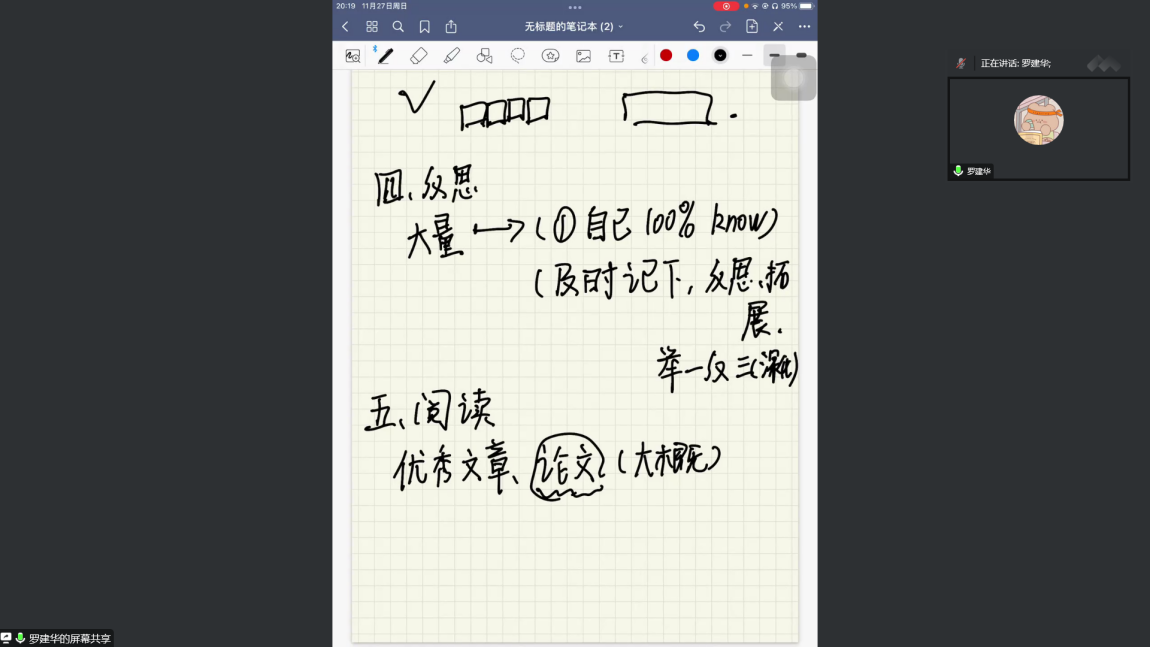 20:19 11月27日周日
95%
无标题的笔记本 (2)
正在讲话: 罗建华;
罗建华
四、反思
大量 → (① 自己 100% know)
(及时记下, 反思、拓
展.
举一反三(深化)
五、阅读
优秀文章、论文 (大概)
罗建华的屏幕共享